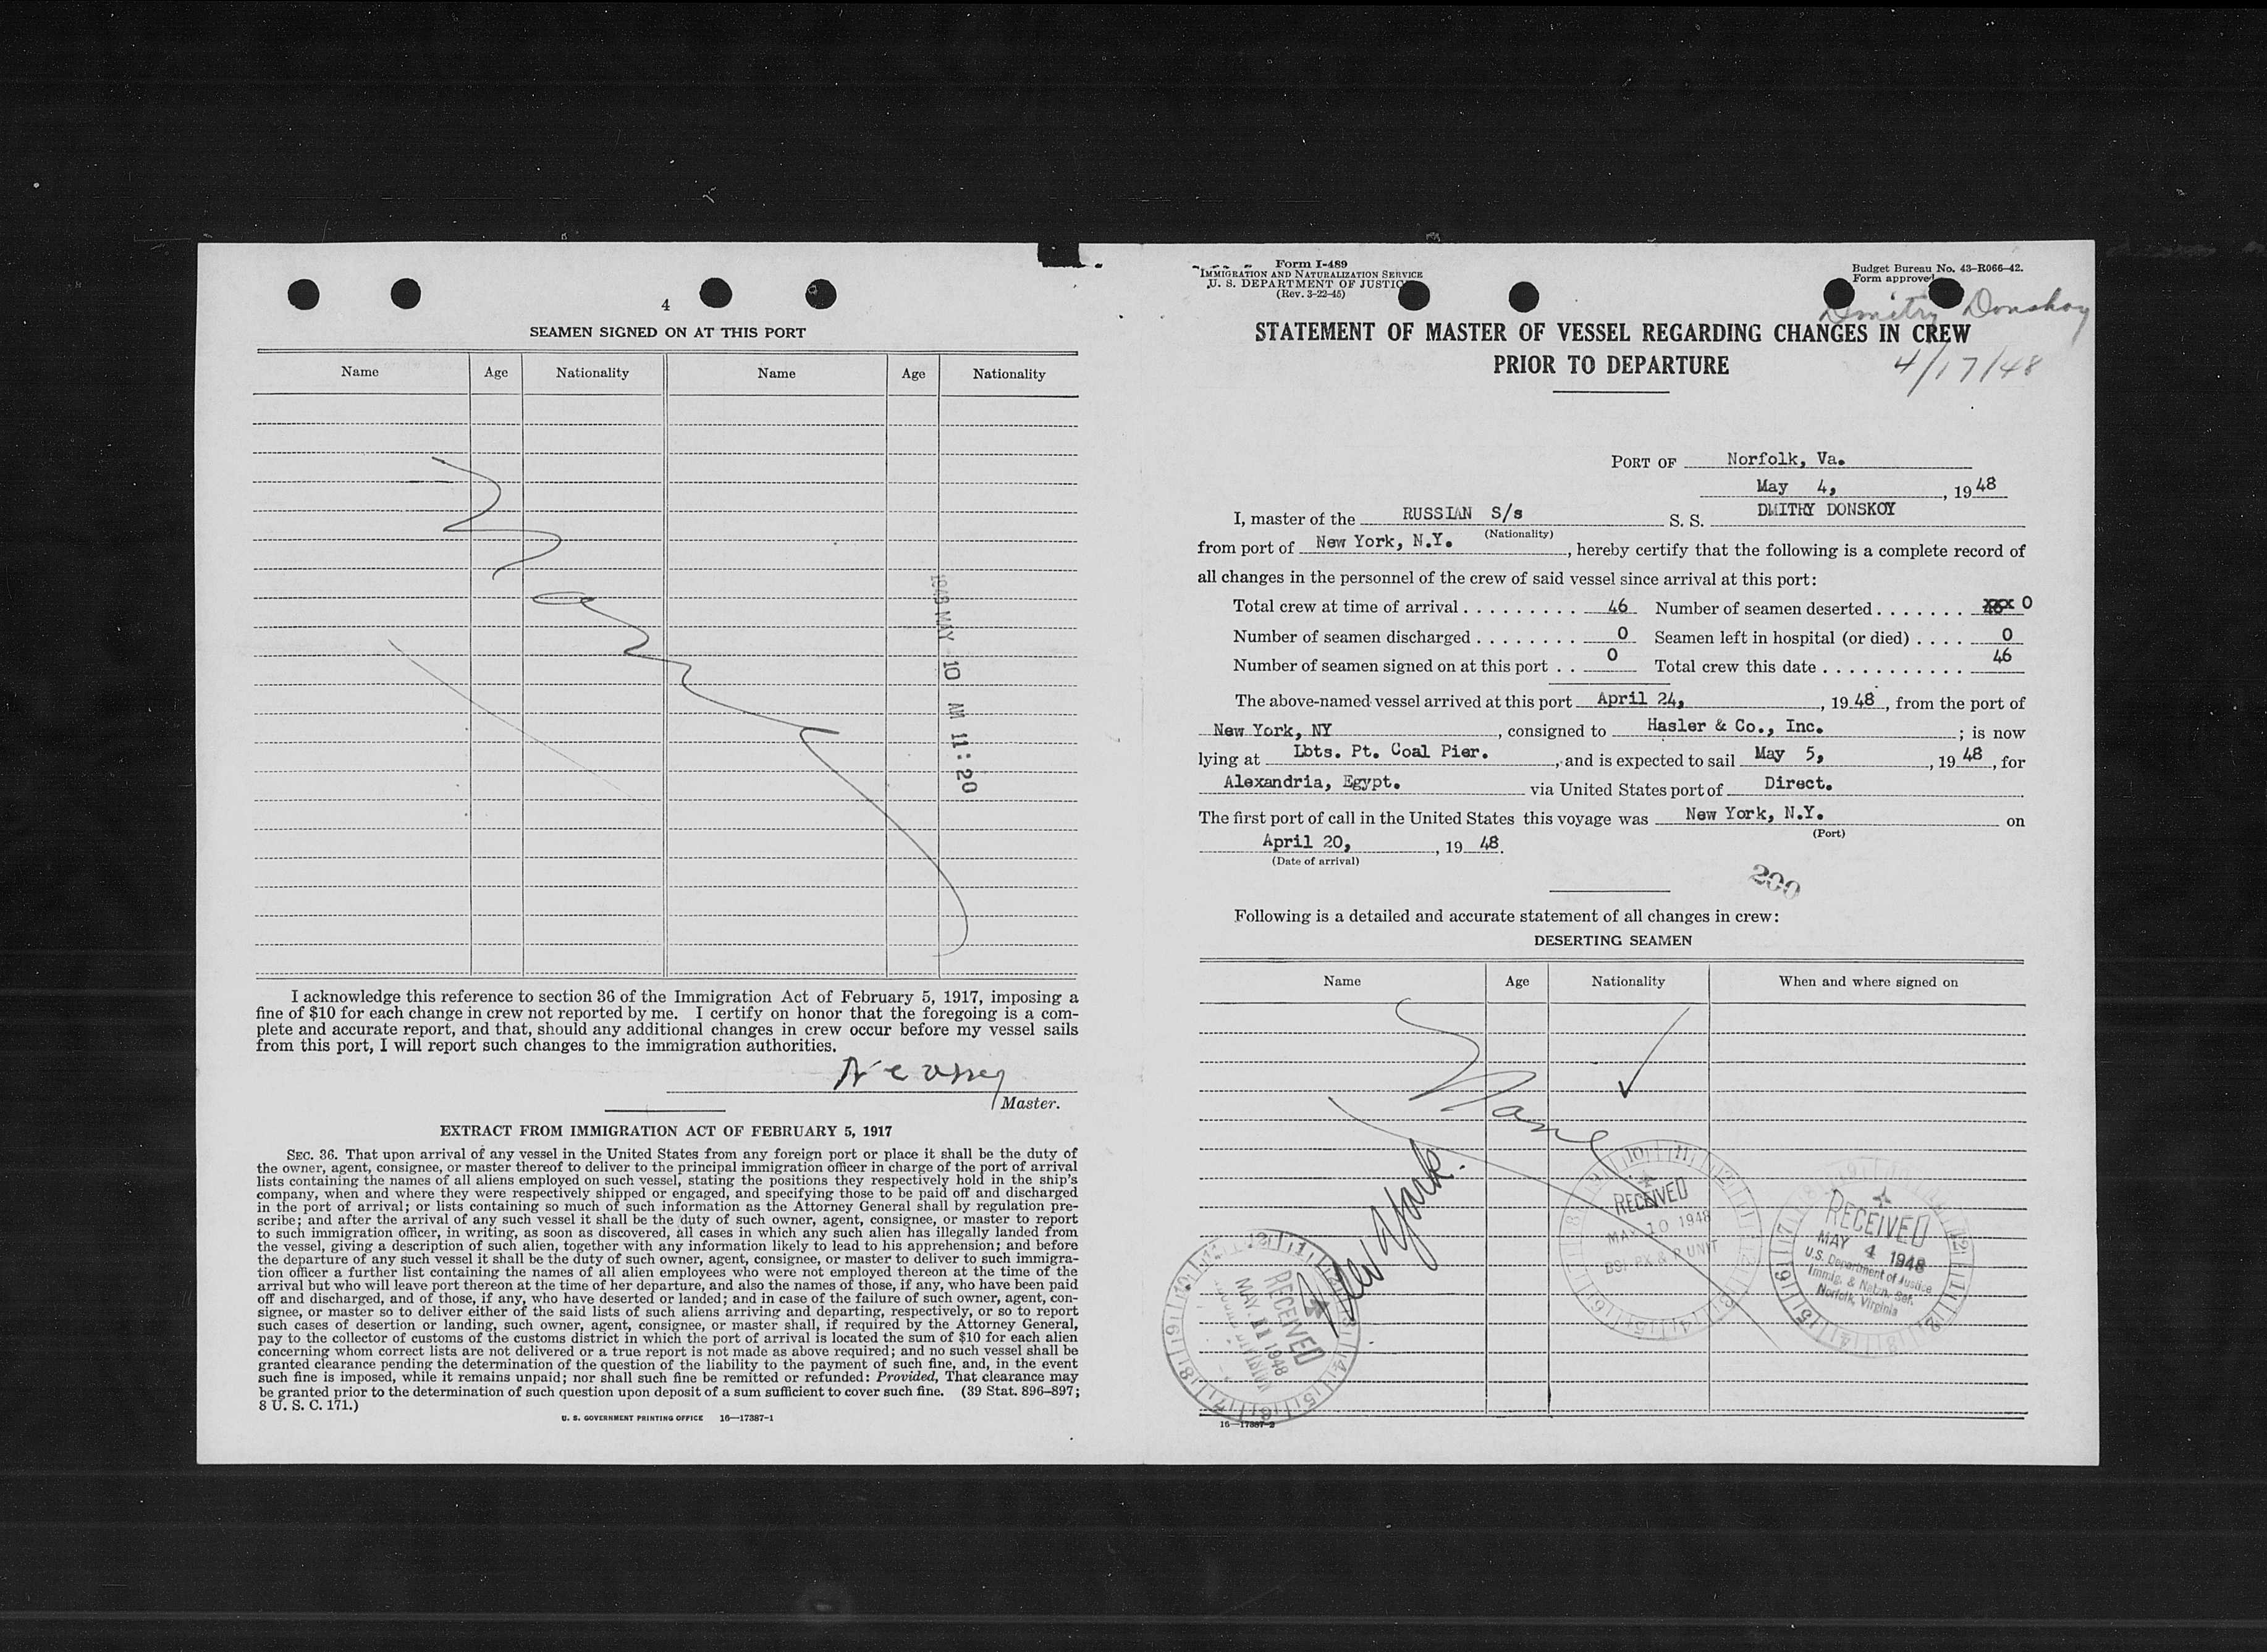 4
SEAMEN SIGNED ON AT THIS PORT
Name Age Nationality Name Age Nationality
1948 MAY 10 AM 11:20
I acknowledge this reference to section 36 of the Immigration Act of February 5, 1917, imposing a
fine of $10 for each change in crew not reported by me. I certify on honor that the foregoing is a com-
plete and accurate report, and that, should any additional changes in crew occur before my vessel sails
from this port, I will report such changes to the immigration authorities.
Master.
EXTRACT FROM IMMIGRATION ACT OF FEBRUARY 5, 1917
SEC. 36. That upon arrival of any vessel in the United States from any foreign port or place it shall be the duty of
the owner, agent, consignee, or master thereof to deliver to the principal immigration officer in charge of the port of arrival
lists containing the names of all aliens employed on such vessel, stating the positions they respectively hold in the ship's
company, when and where they were respectively shipped or engaged, and specifying those to be paid off and discharged
in the port of arrival; or lists containing so much of such information as the Attorney General shall by regulation pre-
scribe; and after the arrival of any such vessel it shall be the duty of such owner, agent, consignee, or master to report
to such immigration officer, in writing, as soon as discovered, all cases in which any such alien has illegally landed from
the vessel, giving a description of such alien, together with any information likely to lead to his apprehension; and before
the departure of any such vessel it shall be the duty of such owner, agent, consignee, or master to deliver to such immigra-
tion officer a further list containing the names of all alien employees who were not employed thereon at the time of the
arrival but who will leave port thereon at the time of her departure, and also the names of those, if any, who have been paid
off and discharged, and of those, if any, who have deserted or landed; and in case of the failure of such owner, agent, con-
signee, or master so to deliver either of the said lists of such aliens arriving and departing, respectively, or so to report
such cases of desertion or landing, such owner, agent, consignee, or master shall, if required by the Attorney General,
pay to the collector of customs of the customs district in which the port of arrival is located the sum of $10 for each alien
concerning whom correct lists are not delivered or a true report is not made as above required; and no such vessel shall be
granted clearance pending the determination of the question of the liability to the payment of such fine, and, in the event
such fine is imposed, while it remains unpaid; nor shall such fine be remitted or refunded: Provided, That clearance may
be granted prior to the determination of such question upon deposit of a sum sufficient to cover such fine. (39 Stat. 896–897;
8 U. S. C. 171.)
U. S. GOVERNMENT PRINTING OFFICE 16—17387-1
Form I-489
IMMIGRATION AND NATURALIZATION SERVICE
U. S. DEPARTMENT OF JUSTICE
(Rev. 3-22-45)
Budget Bureau No. 43-R066-42.
Form approved
Dmitry Donskoy
STATEMENT OF MASTER OF VESSEL REGARDING CHANGES IN CREW
PRIOR TO DEPARTURE
4/17/48
PORT OF Norfolk, Va.
May 4, , 19 48
I, master of the RUSSIAN S/s S. S. DMITRY DONSKOY
(Nationality)
from port of New York, N.Y. , hereby certify that the following is a complete record of
all changes in the personnel of the crew of said vessel since arrival at this port:
Total crew at time of arrival . . . . . . . . . 46 Number of seamen deserted . . . . . . . xxx 0
Number of seamen discharged . . . . . . . . 0 Seamen left in hospital (or died) . . . . 0
Number of seamen signed on at this port . . 0 Total crew this date . . . . . . . . . . . 46
The above-named vessel arrived at this port April 24, , 19 48 , from the port of
New York, NY , consigned to Hasler & Co., Inc. ; is now
lying at Lbts. Pt. Coal Pier. , and is expected to sail May 5, , 19 48 , for
Alexandria, Egypt. via United States port of Direct.
The first port of call in the United States this voyage was New York, N.Y. on
(Port)
April 20, , 19 48.
(Date of arrival)
200
Following is a detailed and accurate statement of all changes in crew:
DESERTING SEAMEN
Name Age Nationality When and where signed on
New York.
RECEIVED
MAY 10 1948
RECEIVED
MAY 4 1948
U.S. Department of Justice
Immig. & Natzn. Ser.
Norfolk, Virginia
RECEIVED
MAY 11 1948
16—17387-2